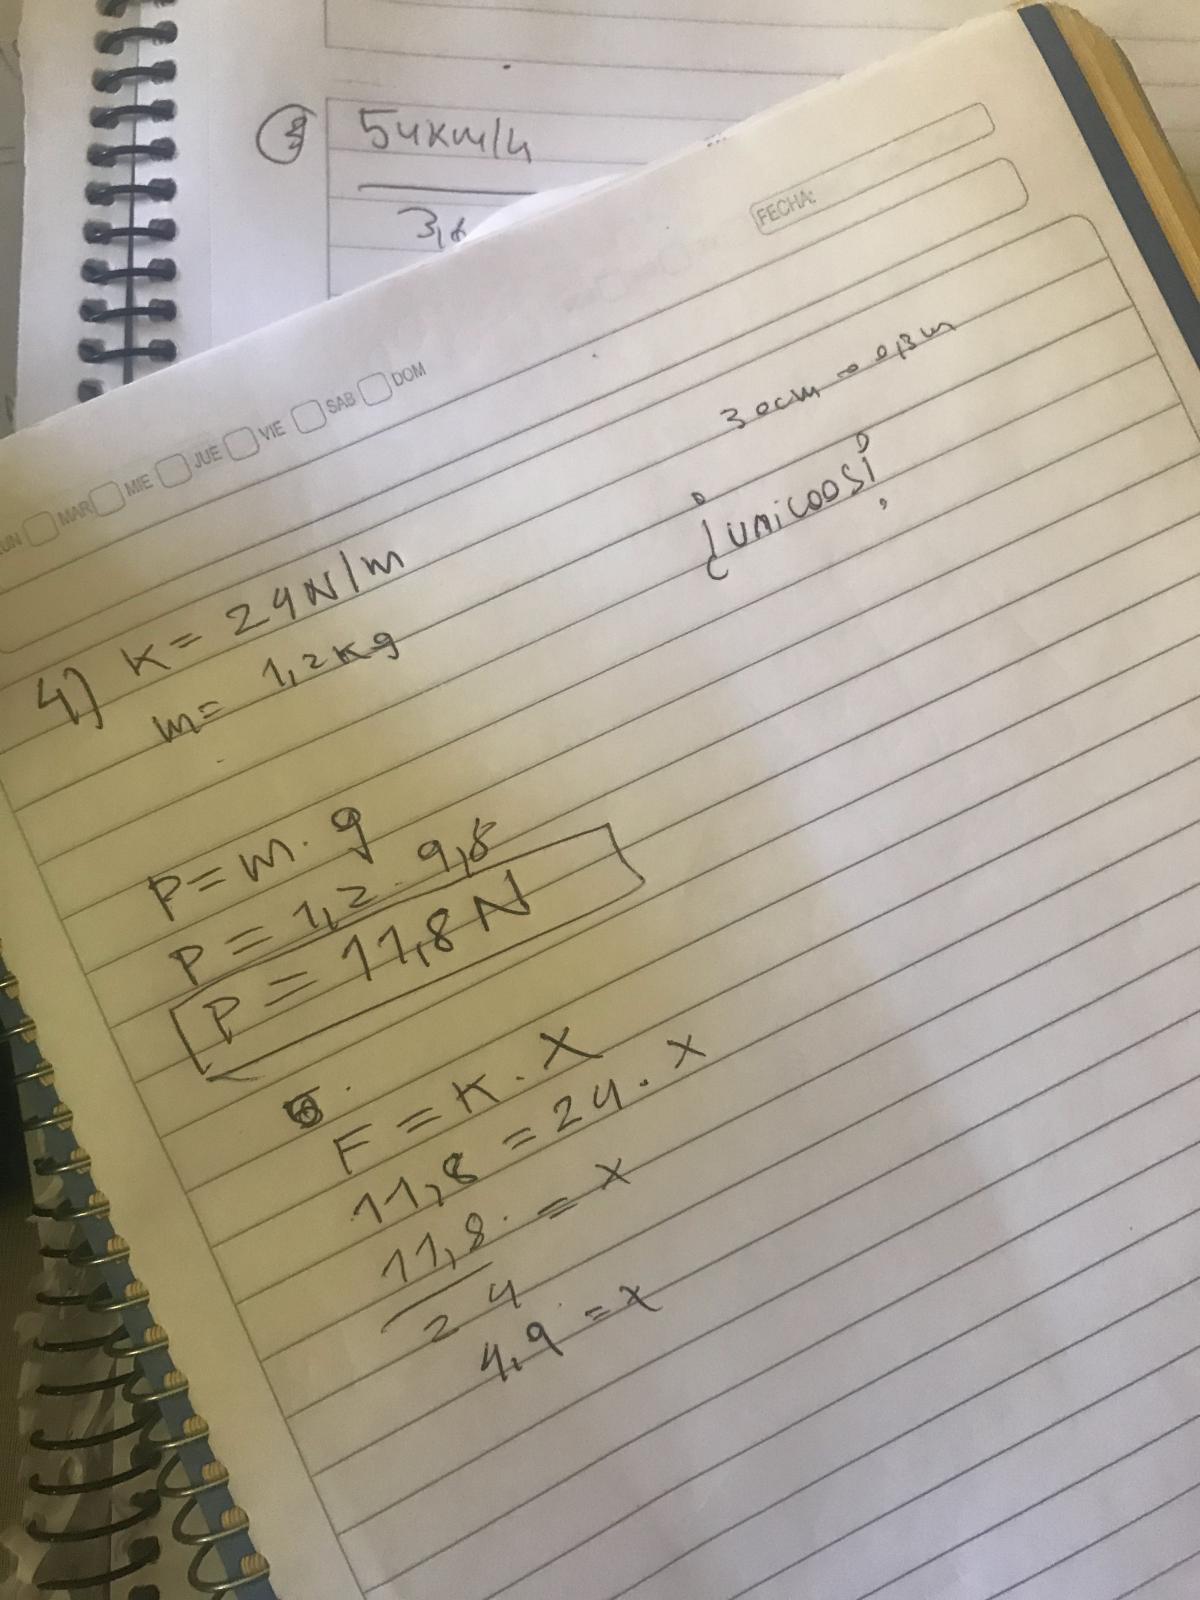 54km/h
3,6
FECHA:
MAR MIE JUE VIE SAB DOM
30cm → 0,3m
¡unicoosi
4) K = 24N/m
m= 1,2kg
P= m. g
P= 1,2. 9,8
P= 11,8 N
F= K. X
11,8 = 24. X
11,8 = X
24
4,9 = X